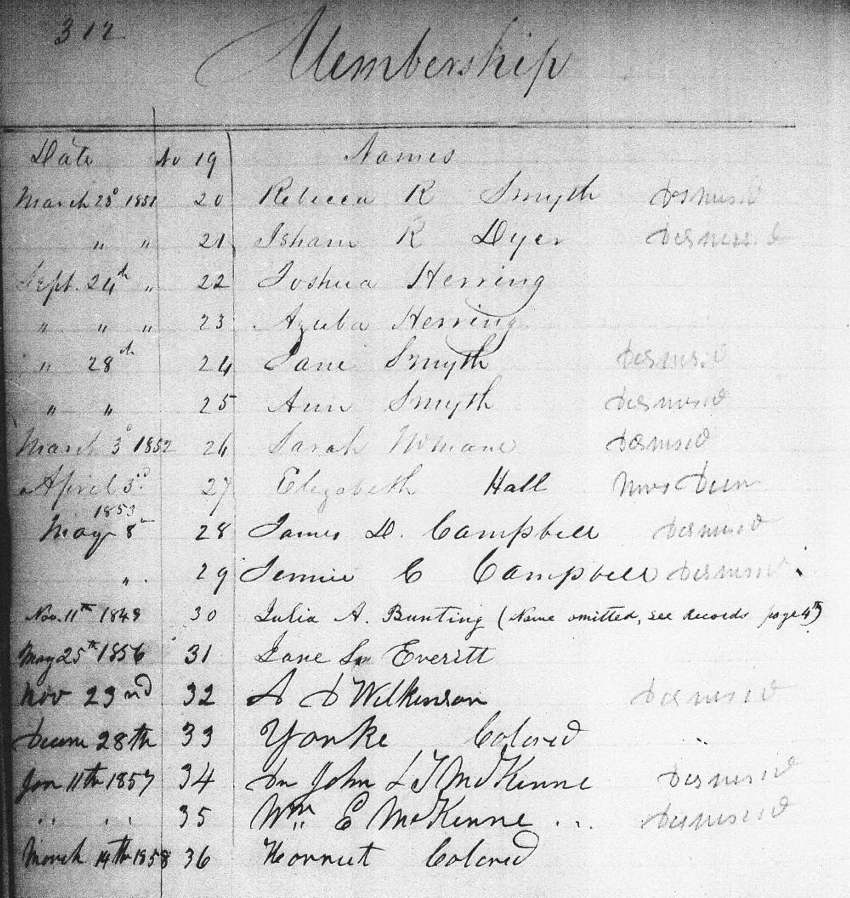 312
Membership
Date No 19 Names
March 23d 1851 20 Rebecca R Smyth Dismissed
" " 21 Isham R Dyer Dismissed
Sept. 24th " 22 Joshua Herring
" " " 23 Azuba Herring
" 28th 24 Jane Smyth Dismissed
" " 25 Ann Smyth Dismissed
March 3d 1852 26 Sarah Dismissed
April 3rd 27 Elizabeth Hall
1853
May 8th 28 James D. Campbell Dismissed
". 29 Jennie C Campbell Dismissed
Nov. 11th 1849 30 Julia A. Bunting (Name omitted, see records page 4th)
May 25th 1856 31 Jane L Everitt
Nov 23nd 32 A D Wilkinson Dismissed
Decem 28th 33 Yonke Colored
Jan 11th 1857 34 Dr John L T McKenne Dismissed
" " 35 Wm E McKenne " Dismissed
March 14th 1858 36 Harriet Colored